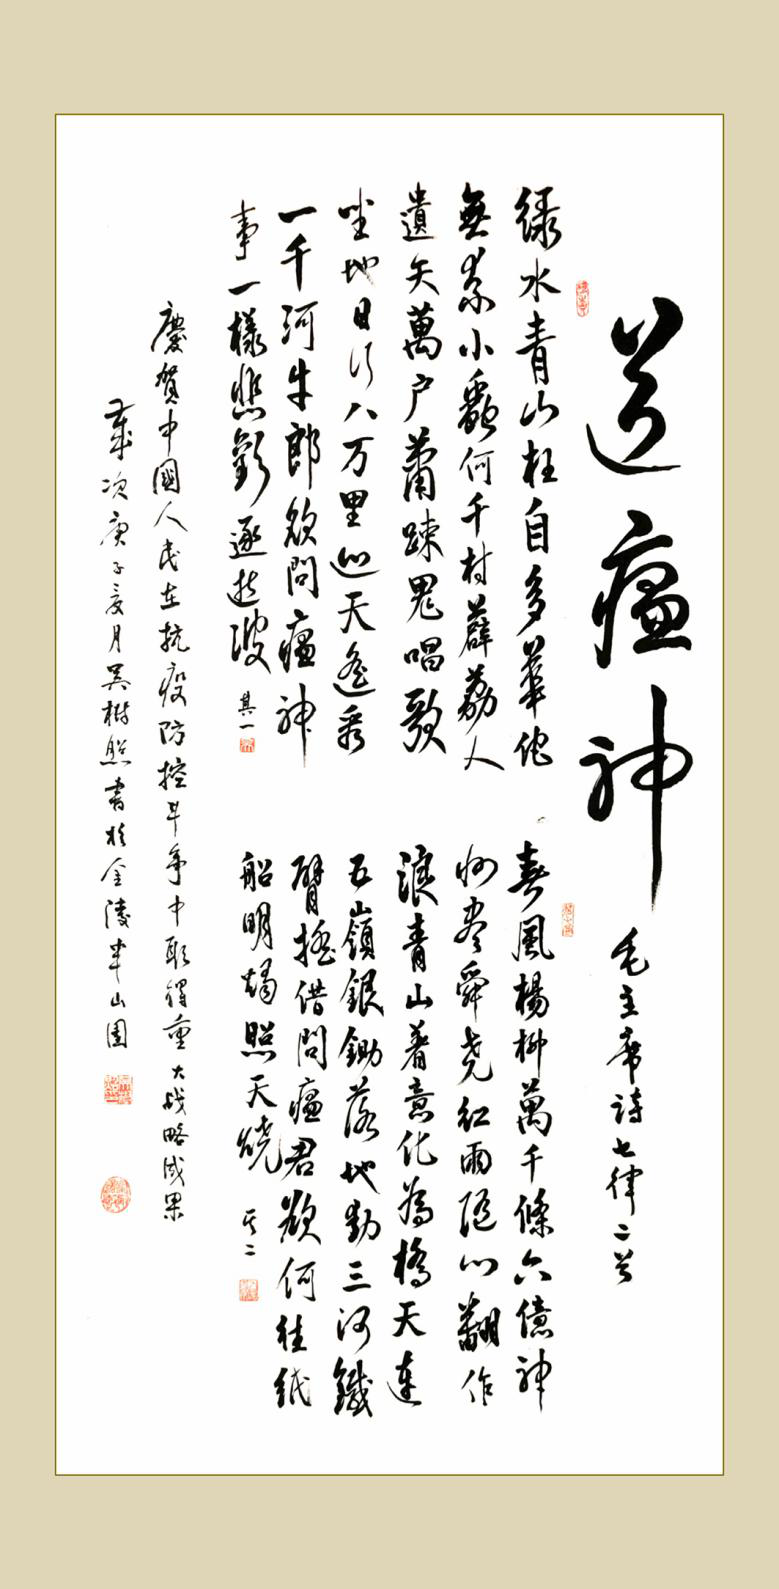 送瘟神
毛主席詩七律二首
绿水青山枉自多華佗
無奈小蟲何千村薜荔人
遺矢萬户蕭疎鬼唱歌
坐地日行八万里巡天遥看
一千河牛郎欲問瘟神
事一樣悲歡逐逝波 其一
春風楊柳萬千條六億神
州尽舜尧红雨随心翻作
浪青山着意化為橋天連
五嶺銀鋤落地動三河鐵
臂摇借問瘟君欲何往紙
船明燭照天燒 其二
慶賀中國人民在抗疫防控斗争中取得重大战略成果
歲次庚子夏月吴樹書於金陵半山園